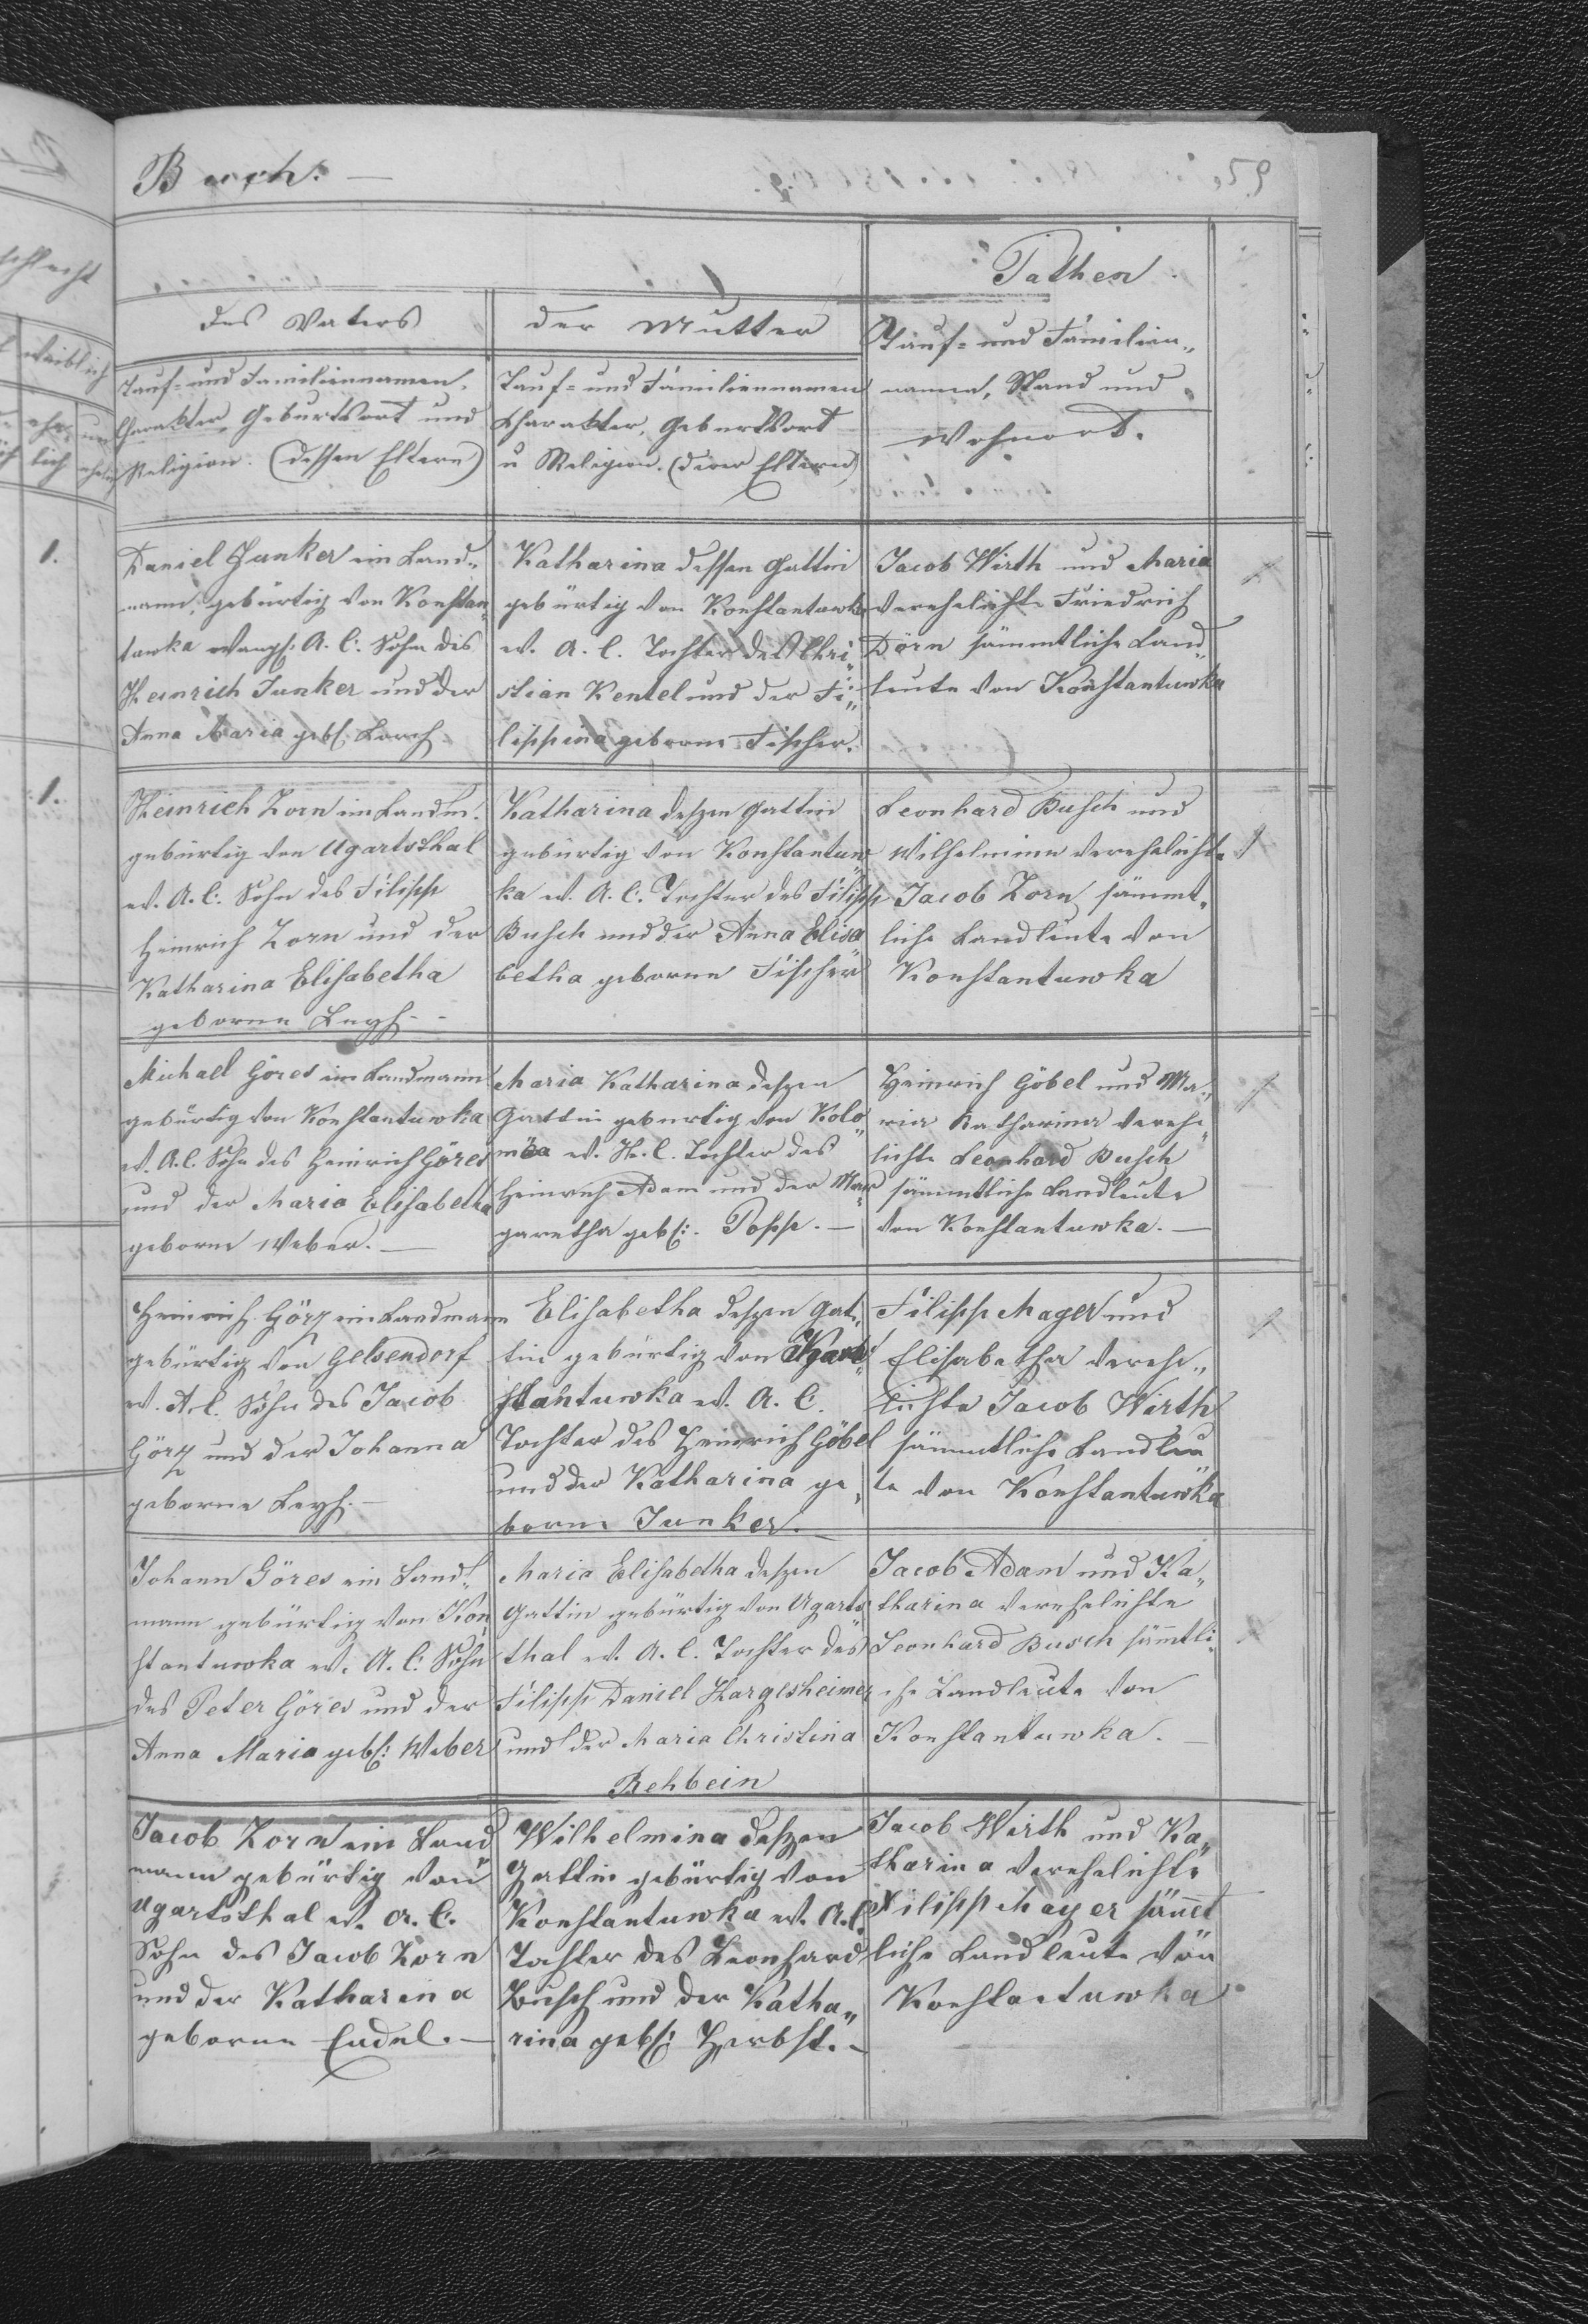 Buch. —
59
Pathen
des Vaters
der Mutter
Tauf- und Familien„
namen, Stand und
Wohnort.
Tauf- und Familiennamen.
Charakter, Geburtsort und
Religion. (dessen Eltern)
Tauf- und Familiennamen
Charakter, Geburtsort
u Religion. (derer Eltern)
weiblich
lich
1.
Daniel Junker ein Land„
mann, gebürtig von Konstan„
tuwka evangl: A. C: Sohn des
Heinrich Junker und der
Anna Maria geb: Lorch
Katharina dessen Gattin
gebürtig von Konstantuwka
ev. A. C. Tochter des Chri„
stian Kentel und der Fi„
lippina geborne Fischer.
Jacob Wirth und Maria
verehelichte Friedrich
Dörn sämmtliche Land„
leute von Konstantuwka
1.
Heinrich Zorn ein Landm.
gebürtig von Ugartsthal
ev. A. C. Sohn des Filipp
Heinrich Zorn und der
Katharina Elisabetha
geborne Leyh. -
Katharina deßen Gattin
gebürtig von Konstantuw„
ka ev. A. C. Tochter des Filipp
Busch und der Anna Elisa„
betha geborne Fischer
Leonhard Busch und
Wilhelmine verehelichte
Jacob Zorn, sämmt„
liche Landleute von
Konstantuwka
Michael Göres ein Landmann
gebürtig von Konstantuwka
ev. A. C. Sohn des Heinrich Göres
und der Maria Elisabetha
geborne Weber. —
Maria Katharina deßen
Gattin gebürtig von Kolo„
mea ev. H. C. Tochter des
Heinrich Adam und der Mar„
garetha geb: Popp. —
Heinrich Göbel und Ma„
ria Katharina verehe„
lichte Leonhard Busch
sämmtliche Landleute
von Konstantuwka. —
Heinrich Görz ein Landmann
gebürtig von Gelsendorf
ev. A. C. Sohn des Jacob
Görz und der Johanna
geborne Leyh. —
Elisabetha deßen Gat„
tin gebürtig von Kon„
stantuwka ev. A. C.
Tochter des Heinrich Göbel
und der Katharina ge„
borne Junker. —
Filipp Mayer und
Elisabetha verehe„
lichte Jacob Wirth
sämmtliche Landleu„
te von Konstantuwka
Johann Göres ein Land„
mann gebürtig von Kon„
stantuwka ev. A. C: Sohn
des Peter Göres und der
Anna Maria geb: Weber
Maria Elisabetha deßen
Gattin gebürtig von Ugarts„
thal ev. A. C. Tochter des
Filipp Daniel Hargesheimer
und der Maria Christina
Rehbein
Jacob Adam und Ka„
tharina verehelichte
Leonhard Busch sämtli„
che Landleute von
Konstantuwka. —
Jacob Zorn ein Land„
mann gebürtig von
Ugartsthal ev. A. C.
Sohn des Jacob Zorn
und der Katharina
geborne Endel. —
Wilhelmina deßen
Gattin gebürtig von
Konstantuwka ev. A. C.
Tochter des Leonhard
Busch und der Katha„
rina geb: Herbst. —
Jacob Wirth und Ka„
tharina verehelichte
Filipp Mayer sämt„
liche Landleute von
Konstantuwka